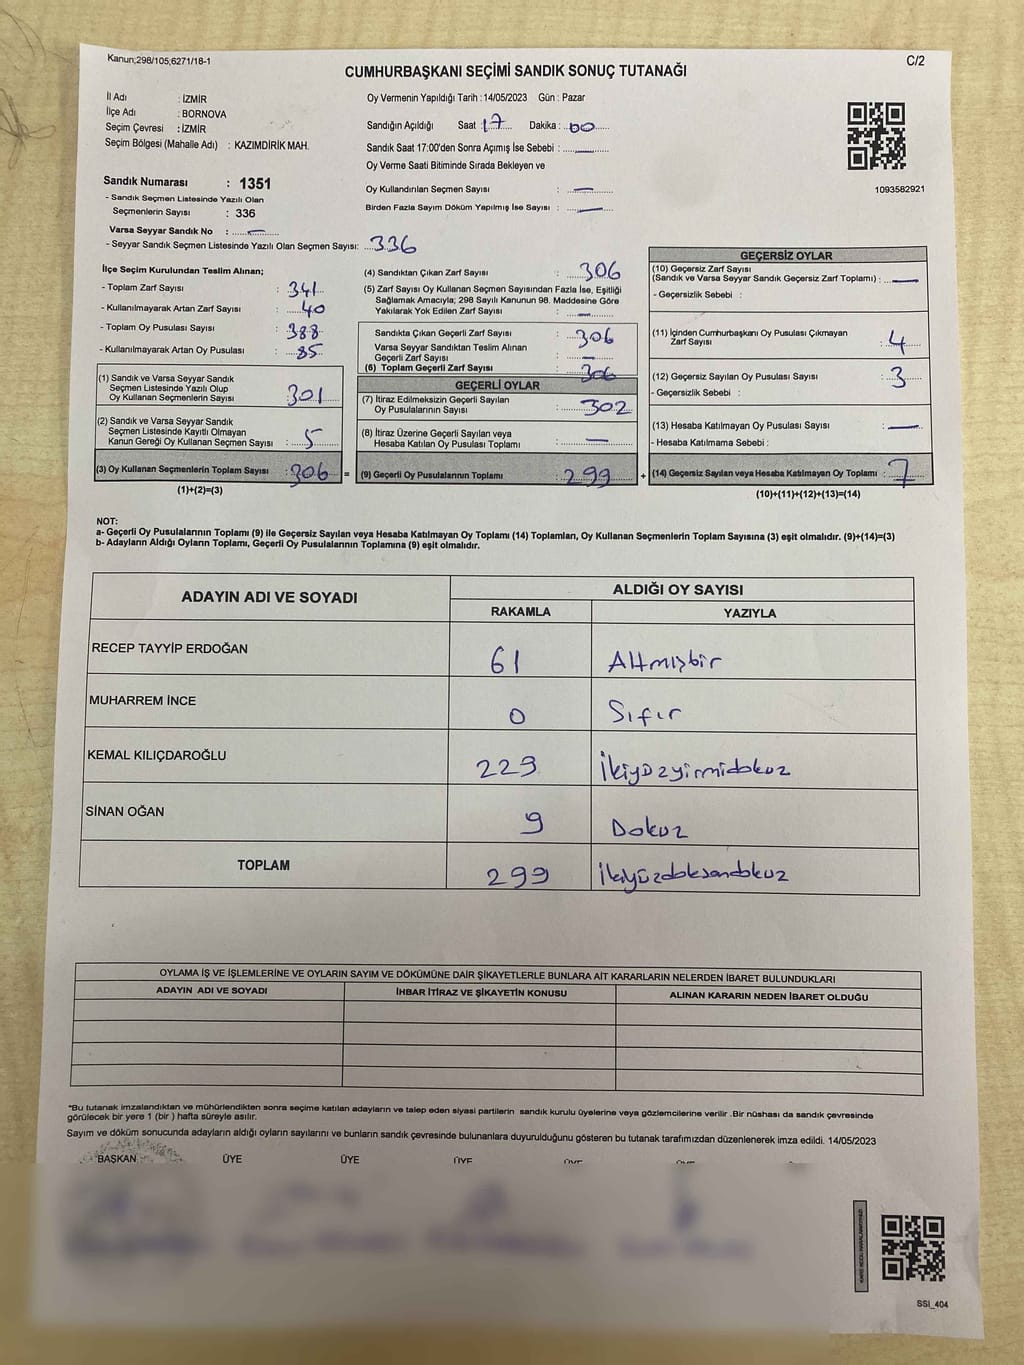 Kanun;298/105,6271/18-1
C/2
CUMHURBAŞKANI SEÇİMİ SANDIK SONUÇ TUTANAĞI
İl Adı : İZMİR
İlçe Adı : BORNOVA
Seçim Çevresi : İZMİR
Seçim Bölgesi (Mahalle Adı) : KAZIMDİRİK MAH.
Oy Vermenin Yapıldığı Tarih : 14/05/2023 Gün : Pazar
Sandığın Açıldığı Saat : 17 Dakika : 00
Sandık Saat 17:00'den Sonra Açımış İse Sebebi : —
Oy Verme Saati Bitiminde Sırada Bekleyen ve
Oy Kullandırılan Seçmen Sayısı : —
Birden Fazla Sayım Döküm Yapılmış İse Sayısı : —
1093582921
Sandık Numarası : 1351
- Sandık Seçmen Listesinde Yazılı Olan
Seçmenlerin Sayısı : 336
Varsa Seyyar Sandık No : —
- Seyyar Sandık Seçmen Listesinde Yazılı Olan Seçmen Sayısı: 336
İlçe Seçim Kurulundan Teslim Alınan;
- Toplam Zarf Sayısı : 341
- Kullanılmayarak Artan Zarf Sayısı : 40
- Toplam Oy Pusulası Sayısı : 388
- Kullanılmayarak Artan Oy Pusulası : 85
(1) Sandık ve Varsa Seyyar Sandık
Seçmen Listesinde Yazılı Olup
Oy Kullanan Seçmenlerin Sayısı : 301
(2) Sandık ve Varsa Seyyar Sandık
Seçmen Listesinde Kayıtlı Olmayan
Kanun Gereği Oy Kullanan Seçmen Sayısı : 5
(3) Oy Kullanan Seçmenlerin Toplam Sayısı : 306 =
(1)+(2)=(3)
(4) Sandıktan Çıkan Zarf Sayısı : 306
(5) Zarf Sayısı Oy Kullanan Seçmen Sayısından Fazla İse, Eşitliği
Sağlamak Amacıyla; 298 Sayılı Kanunun 98. Maddesine Göre
Yakılarak Yok Edilen Zarf Sayısı : —
Sandıkta Çıkan Geçerli Zarf Sayısı : 306
Varsa Seyyar Sandıktan Teslim Alınan
Geçerli Zarf Sayısı : —
(6) Toplam Geçerli Zarf Sayısı : 306
GEÇERLİ OYLAR
(7) İtiraz Edilmeksizin Geçerli Sayılan
Oy Pusulalarının Sayısı : 302
(8) İtiraz Üzerine Geçerli Sayılan veya
Hesaba Katılan Oy Pusulası Toplamı : —
(9) Geçerli Oy Pusulalarının Toplamı : 299 +
GEÇERSİZ OYLAR
(10) Geçersiz Zarf Sayısı
(Sandık ve Varsa Seyyar Sandık Geçersiz Zarf Toplamı) : —
- Geçersizlik Sebebi :
(11) İçinden Cumhurbaşkanı Oy Pusulası Çıkmayan
Zarf Sayısı : 4
(12) Geçersiz Sayılan Oy Pusulası Sayısı : 3
- Geçersizlik Sebebi :
(13) Hesaba Katılmayan Oy Pusulası Sayısı : —
- Hesaba Katılmama Sebebi :
(14) Geçersiz Sayılan veya Hesaba Katılmayan Oy Toplamı : 7
(10)+(11)+(12)+(13)=(14)
NOT:
a- Geçerli Oy Pusulalarının Toplamı (9) ile Geçersiz Sayılan veya Hesaba Katılmayan Oy Toplamı (14) Toplamları, Oy Kullanan Seçmenlerin Toplam Sayısına (3) eşit olmalıdır. (9)+(14)=(3)
b- Adayların Aldığı Oyların Toplamı, Geçerli Oy Pusulalarının Toplamına (9) eşit olmalıdır.
ADAYIN ADI VE SOYADI
ALDIĞI OY SAYISI
RAKAMLA YAZIYLA
RECEP TAYYİP ERDOĞAN 61 Altmışbir
MUHARREM İNCE 0 Sıfır
KEMAL KILIÇDAROĞLU 229 İkiyüzyirmidokuz
SİNAN OĞAN 9 Dokuz
TOPLAM 299 İkiyüzdoksandokuz
OYLAMA İŞ VE İŞLEMLERİNE VE OYLARIN SAYIM VE DÖKÜMÜNE DAİR ŞİKAYETLERLE BUNLARA AİT KARARLARIN NELERDEN İBARET BULUNDUKLARI
ADAYIN ADI VE SOYADI İHBAR İTİRAZ VE ŞİKAYETİN KONUSU ALINAN KARARIN NEDEN İBARET OLDUĞU
*Bu tutanak imzalandıktan ve mühürlendikten sonra seçime katılan adayların ve talep eden siyasi partilerin sandık kurulu üyelerine veya gözlemcilerine verilir .Bir nüshası da sandık çevresinde
görülecek bir yere 1 (bir ) hafta süreyle asılır.
Sayım ve döküm sonucunda adayların aldığı oyların sayılarını ve bunların sandık çevresinde bulunanlara duyurulduğunu gösteren bu tutanak tarafımızdan düzenlenerek imza edildi. 14/05/2023
BAŞKAN ÜYE ÜYE ÜYE ÜYE ÜYE
SSI_404